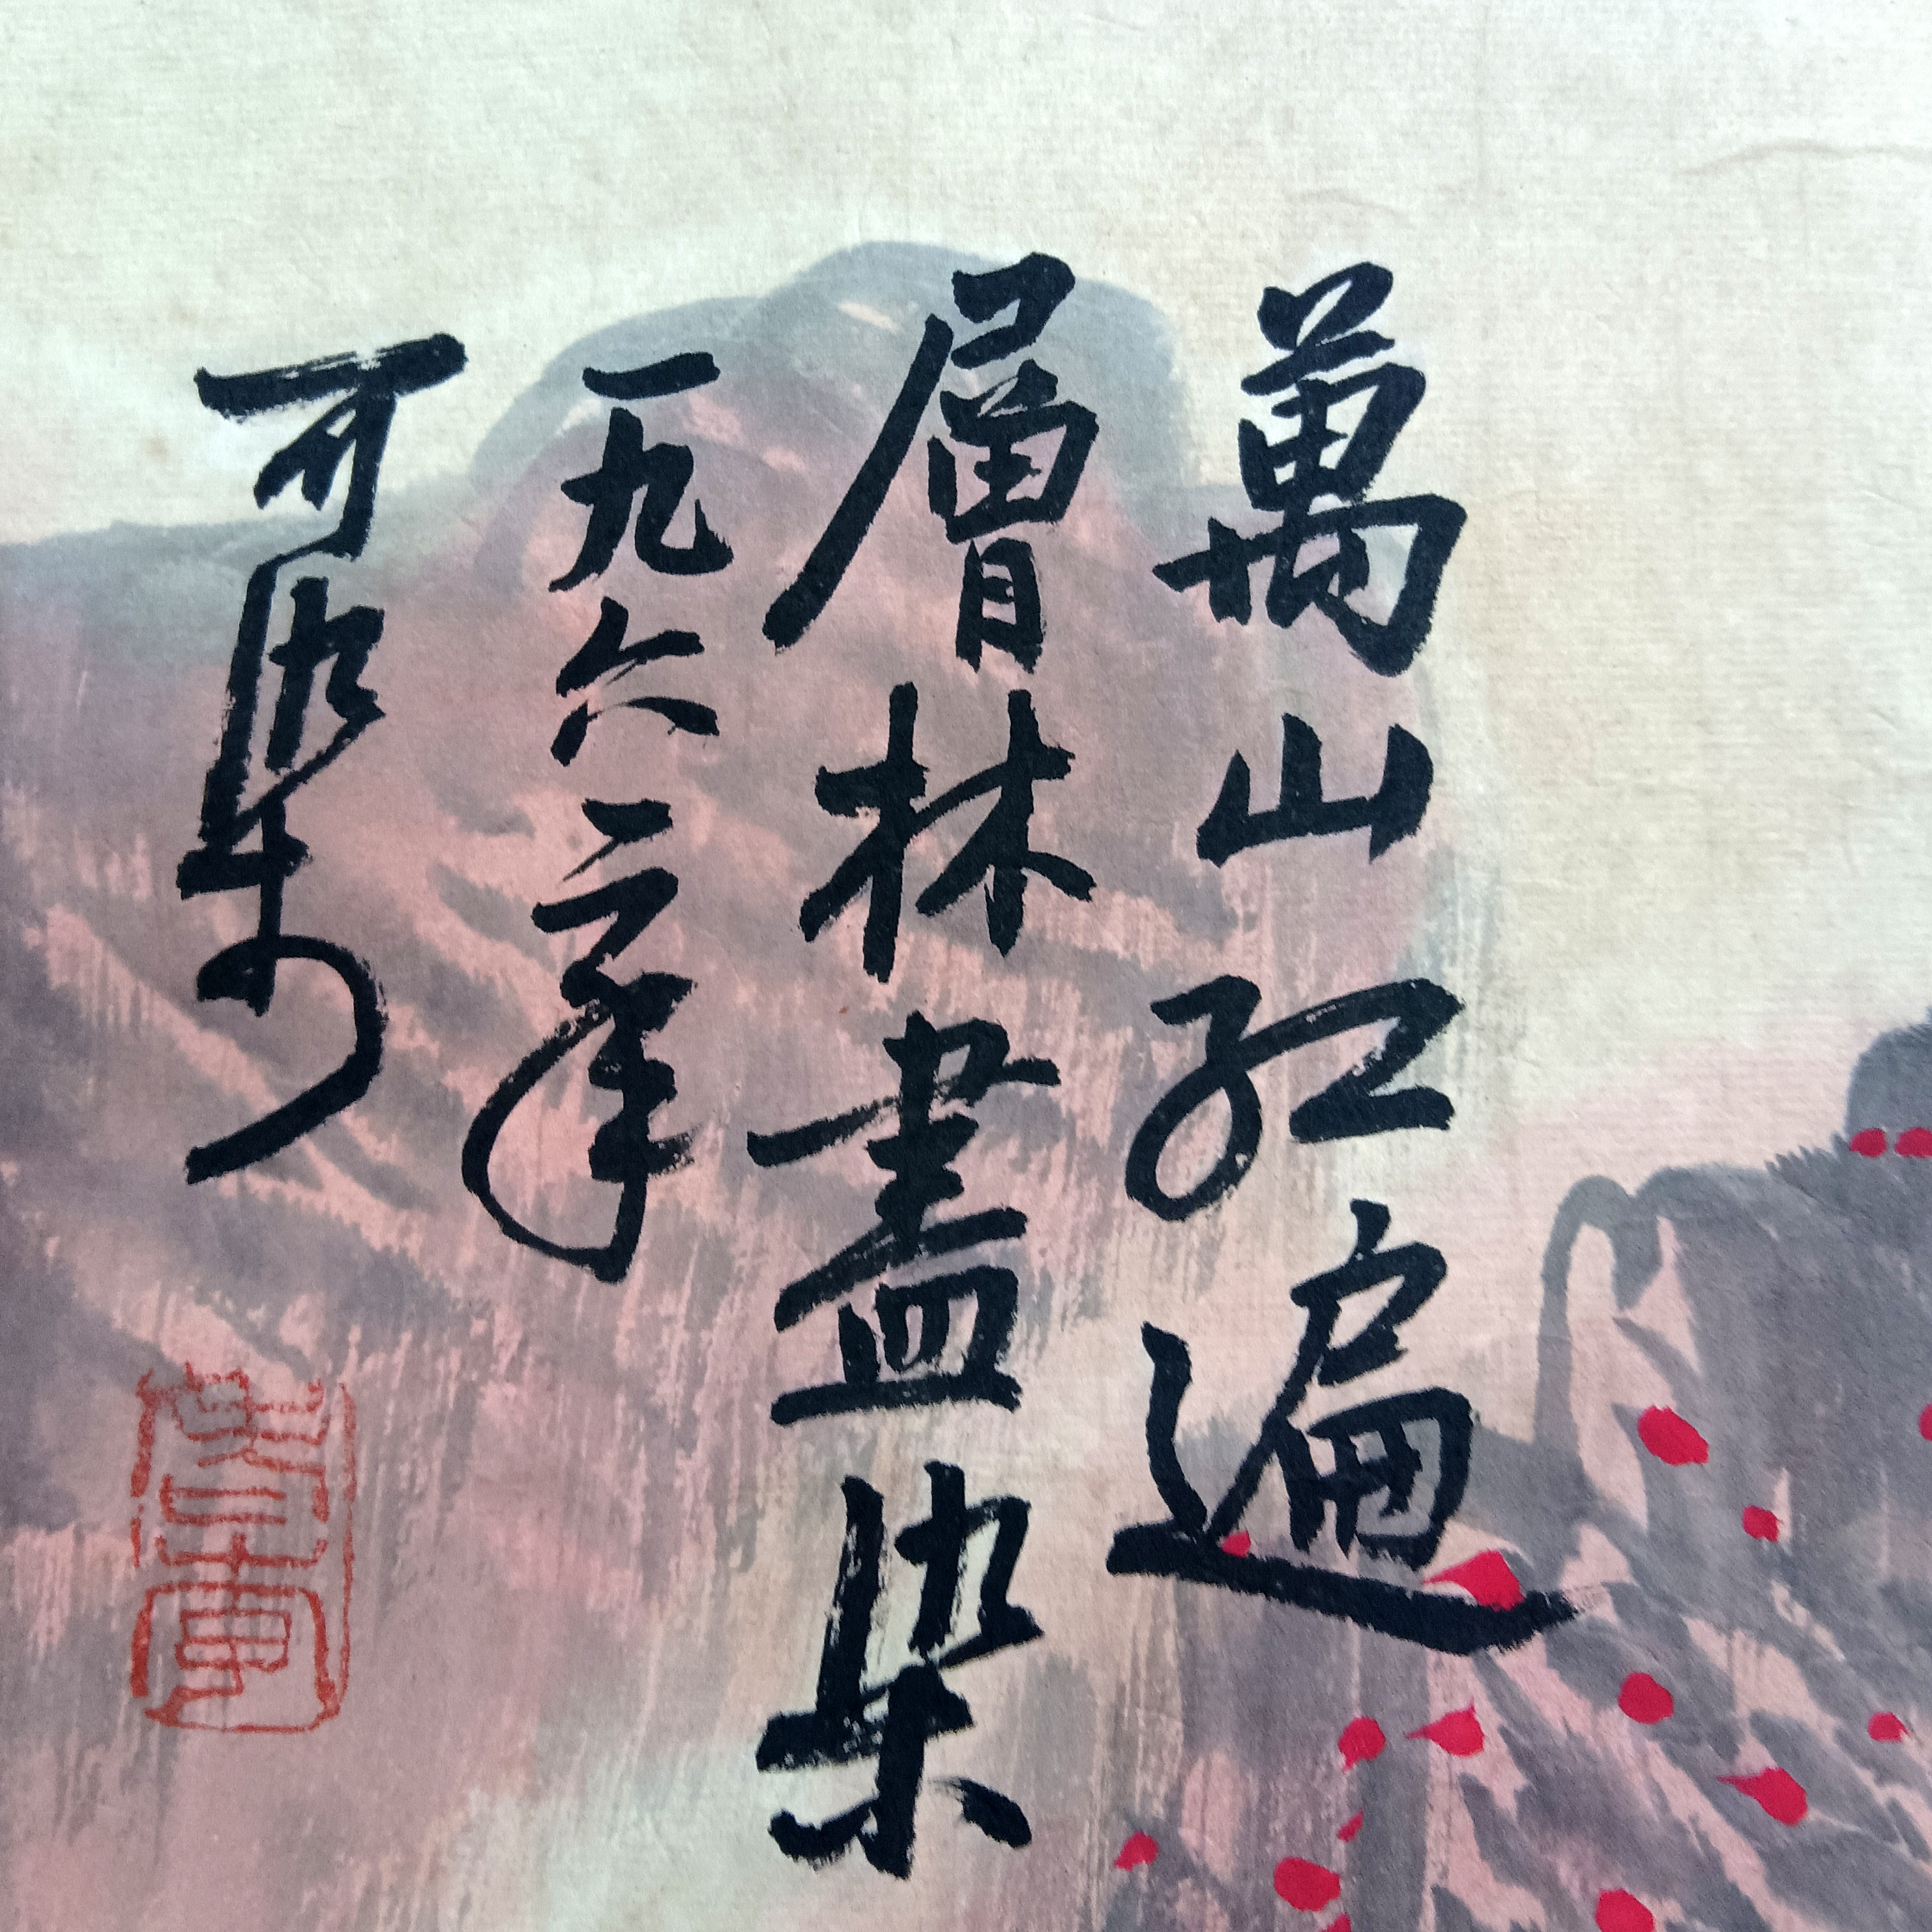 萬山紅遍
層林盡染
一九六二年
可染